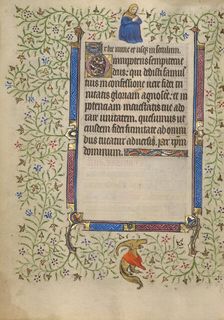 Et hic nunc et usque in seculum.
Omnipotens sempiterne
deus: qui dedisti famulis
tuis in confessione vere fidei tri
nitatis gloriam agnoscere: et in
potentiam maiestatis tue ado
rare unitatem. quesumus ut
eiusdem fidei firmitate ab omni
bus tueatur adversis. par xpm
dominum.